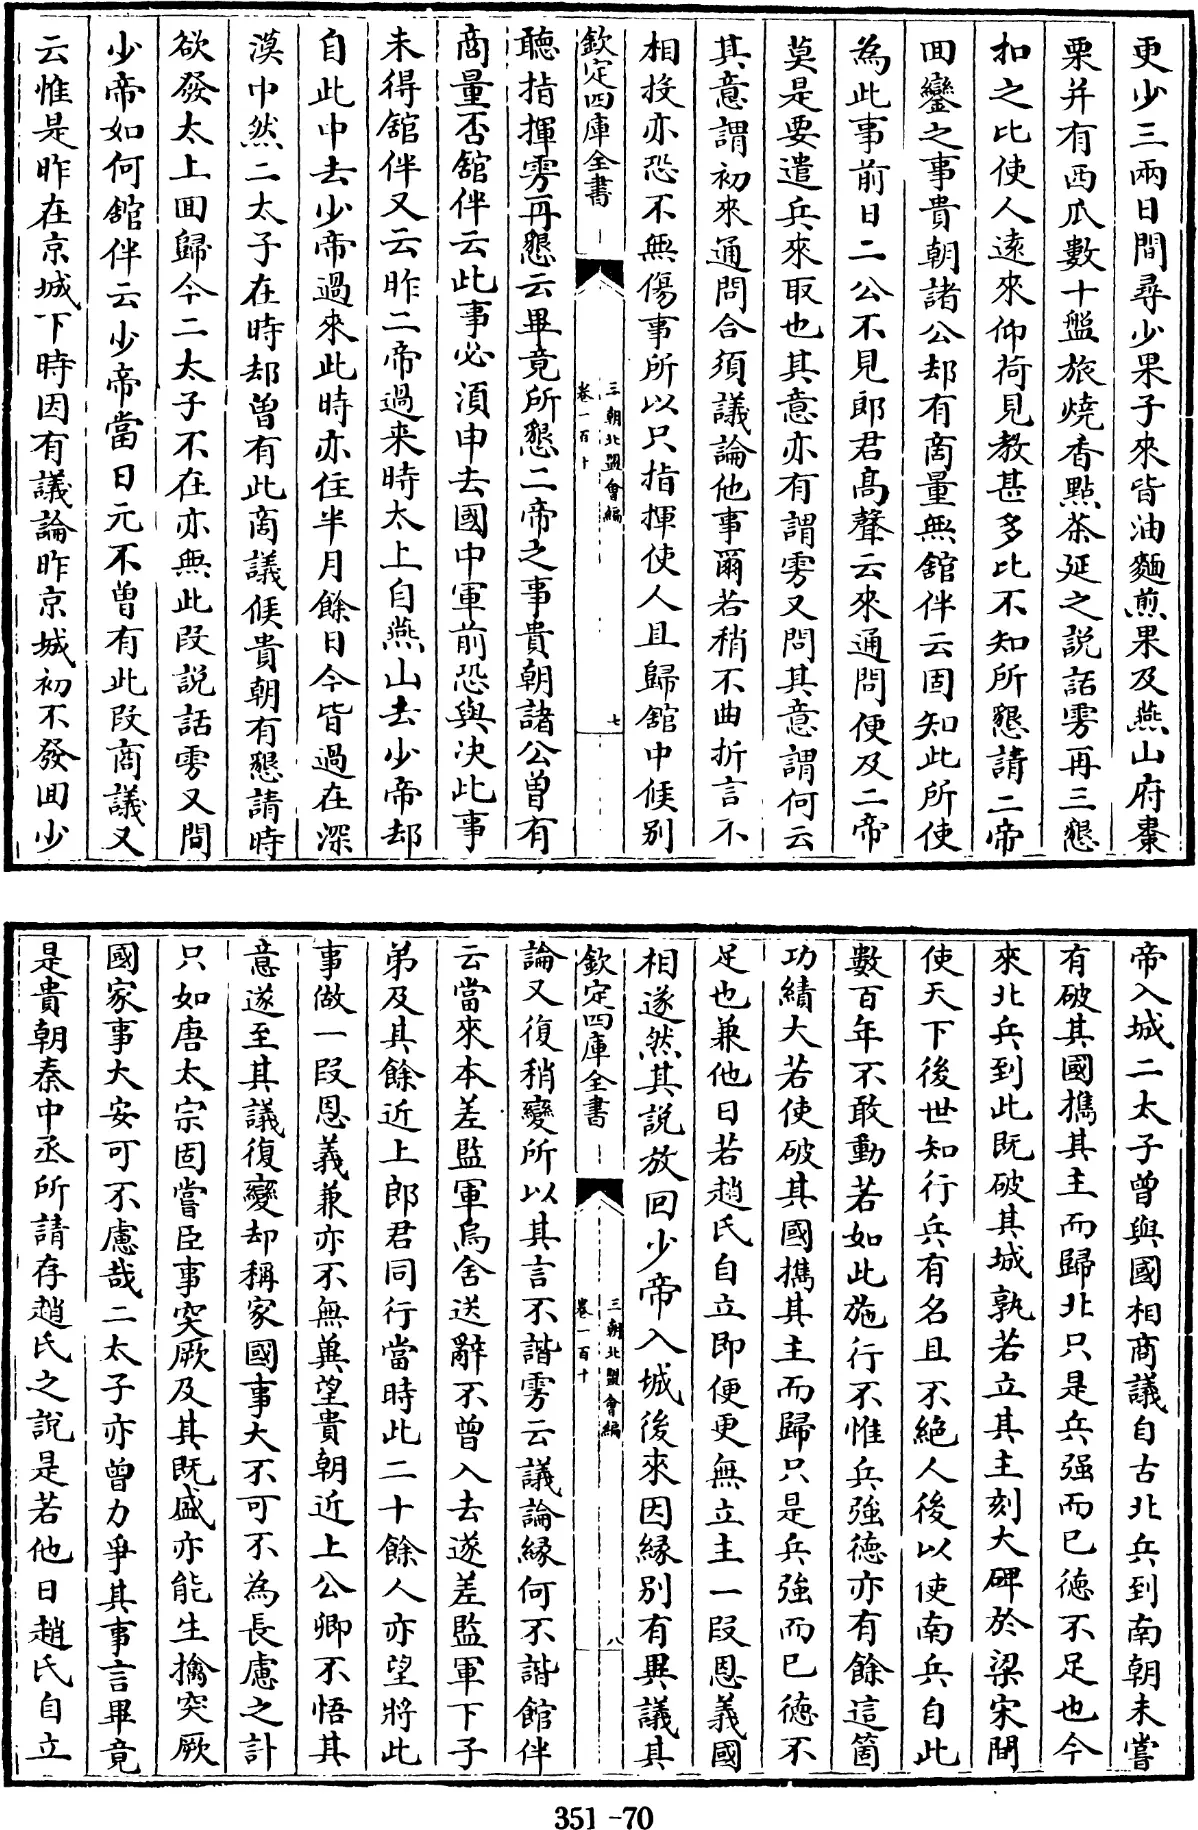 更少三兩日間尋少果子來皆油麵煎果及燕山府棗
栗并有西瓜數十盤旅燒香點茶延之說話雱再三懇
扣之比使人遠來仰荷見教甚多比不知所懇請二帝
回鑾之事貴朝諸公却有商量無舘伴云固知此所使
為此事前日二公不見郎君高聲云來通問便及二帝
莫是要遣兵來取也其意亦有謂雱又問其意謂何云
其意謂初來通問合須議論他事爾若稍不曲折言不
相投亦恐不無傷事所以只指揮使人且歸舘中候别
欽定四庫全書
三朝北盟會編
卷一百十
七
聽指揮雱再懇云畢竟所懇二帝之事貴朝諸公曽有
商量否舘伴云此事必須申去國中軍前恐與决此事
未得舘伴又云昨二帝過来時太上自燕山去少帝却
自此中去少帝過來此時亦住半月餘日今皆過在深
漠中然二太子在時却曽有此商議候貴朝有懇請時
欲發太上回歸今二太子不在亦無此段說話雱又問
少帝如何舘伴云少帝當日元不曽有此段商議又
云惟是昨在京城下時因有議論昨京城初不發回少
帝入城二太子曾與國相商議自古北兵到南朝未嘗
有破其國擕其主而歸北只是兵强而已徳不足也今
來北兵到此既破其城孰若立其主刻大碑於梁宋間
使天下後世知行兵有名且不絶人後以使南兵自此
數百年不敢動若如此施行不惟兵強徳亦有餘這箇
功績大若使破其國擕其主而歸只是兵強而已徳不
足也兼他日若趙氏自立即便更無立主一段恩義國
相遂然其說放回少帝入城後來因縁别有異議其
欽定四庫全書
三朝北盟會編
卷一百十
八
論又復稍變所以其言不諧雱云議論縁何不諧館伴
云當來本差監軍烏舍送辭不曾入去遂差監軍下子
弟及其餘近上郎君同行當時此二十餘人亦望將此
事做一段恩義兼亦不無兾望貴朝近上公卿不悟其
意遂至其議復變却稱家國事大不可不為長慮之計
只如唐太宗固嘗臣事突厥及其既盛亦能生擒突厥
國家事大安可不慮哉二太子亦曾力爭其事言畢竟
是貴朝秦中丞所請存趙氏之說是若他日趙氏自立
351-70